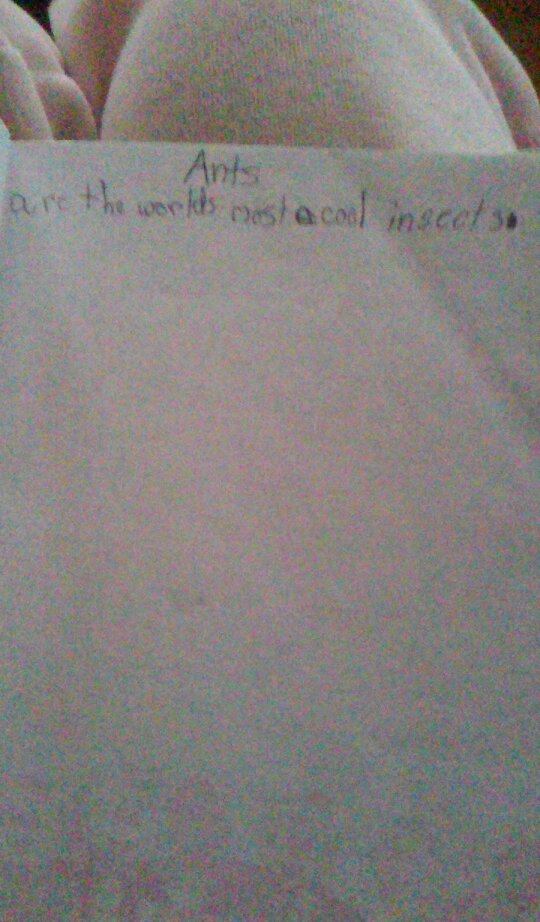 Ants
are the worlds most cool insects.